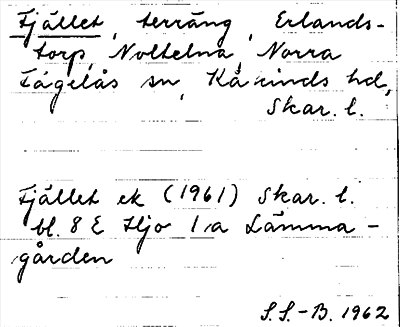 Fjället, terräng, Erlands-
torp, Noltelna, Norra
Fågelås sn, Kåkinds hd,
Skar. l.
Fjället ek (1961) Skar. l.
bl. 8 E Hjo 1 a Lämma-
gården
S.S.-B. 1962